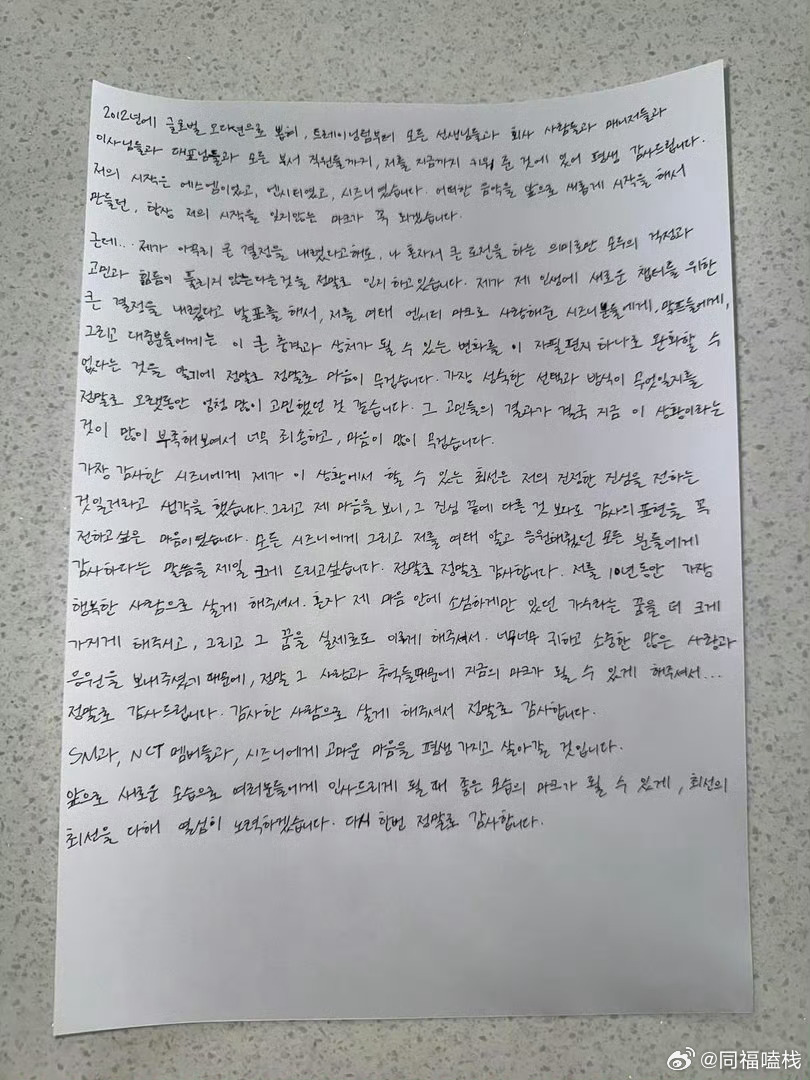 2012년에 글로벌 오디션으로 뽑혀, 트레이닝팀부터 모든 선생님들과 회사 사람들과 매니저들과
이사님들과 대표님들과 모든 부서 직원들까지, 저를 지금까지 키워 준 것에 있어 평생 감사드립니다.
저의 시작은 에스엠이었고, 엔시티였고, 시즈니였습니다. 어떠한 음악을 앞으로 새롭게 시작을 해서
만들던, 항상 저의 시작을 잊지않는 마크가 꼭 되겠습니다.
근데... 제가 아무리 큰 결정을 내렸다고해도, 나 혼자서 큰 도전을 하는 의미로만 모두의 걱정과
고민과 힘듦이 풀리지 않는다는것을 정말로 인지 하고있습니다. 제가 제 인생에 새로운 챕터를 위한
큰 결정을 내렸다고 발표를 해서, 저를 여태 엔시티 마크로 사랑해준 시즈니분들에게, 맠프들에게,
그리고 대중분들에게는 이 큰 충격과 상처가 될 수 있는 변화를 이 자필편지 하나로 완화할 수
없다는 것을 알기에 정말로 정말로 마음이 무겁습니다. 가장 성숙한 선택과 방식이 무엇일지를
정말로 오랫동안 엄청 많이 고민했던 것 같습니다. 그 고민들의 결과가 결국 지금 이 상황이라는
것이 많이 부족해보여서 너무 죄송하고, 마음이 많이 무겁습니다.
가장 감사한 시즈니에게 제가 이 상황에서 할 수 있는 최선은 저의 진정한 진심을 전하는
것일거라고 생각을 했습니다. 그리고 제 마음을 보니, 그 진심 끝에 다른 것 보다도 감사의 표현을 꼭
전하고싶은 마음이었습니다. 모든 시즈니에게 그리고 저를 여태 알고 응원해줬던 모든 분들에게
감사하다는 말씀을 제일 크게 드리고싶습니다. 정말로 정말로 감사합니다. 저를 10년동안 가장
행복한 사람으로 살게 해주셔서. 혼자 제 마음 안에 소심하게만 있던 가수라는 꿈을 더 크게
가지게 해주시고, 그리고 그 꿈을 실제로도 이루게 해주셔서. 너무너무 귀하고 소중한 많은 사랑과
응원을 보내주셨기 때문에, 정말 그 사랑과 추억들때문에 지금의 마크가 될 수 있게 해주셔서...
정말로 감사드립니다. 감사한 사람으로 살게 해주셔서 정말로 감사합니다.
SM과, NCT 멤버들과, 시즈니에게 고마운 마음을 평생 가지고 살아갈 것입니다.
앞으로 새로운 모습으로 여러분들에게 인사드리게 될 때 좋은 모습의 마크가 될 수 있게, 최선의
최선을 다해 열심히 노력하겠습니다. 다시 한번 정말로 감사합니다.
@同福嗑栈